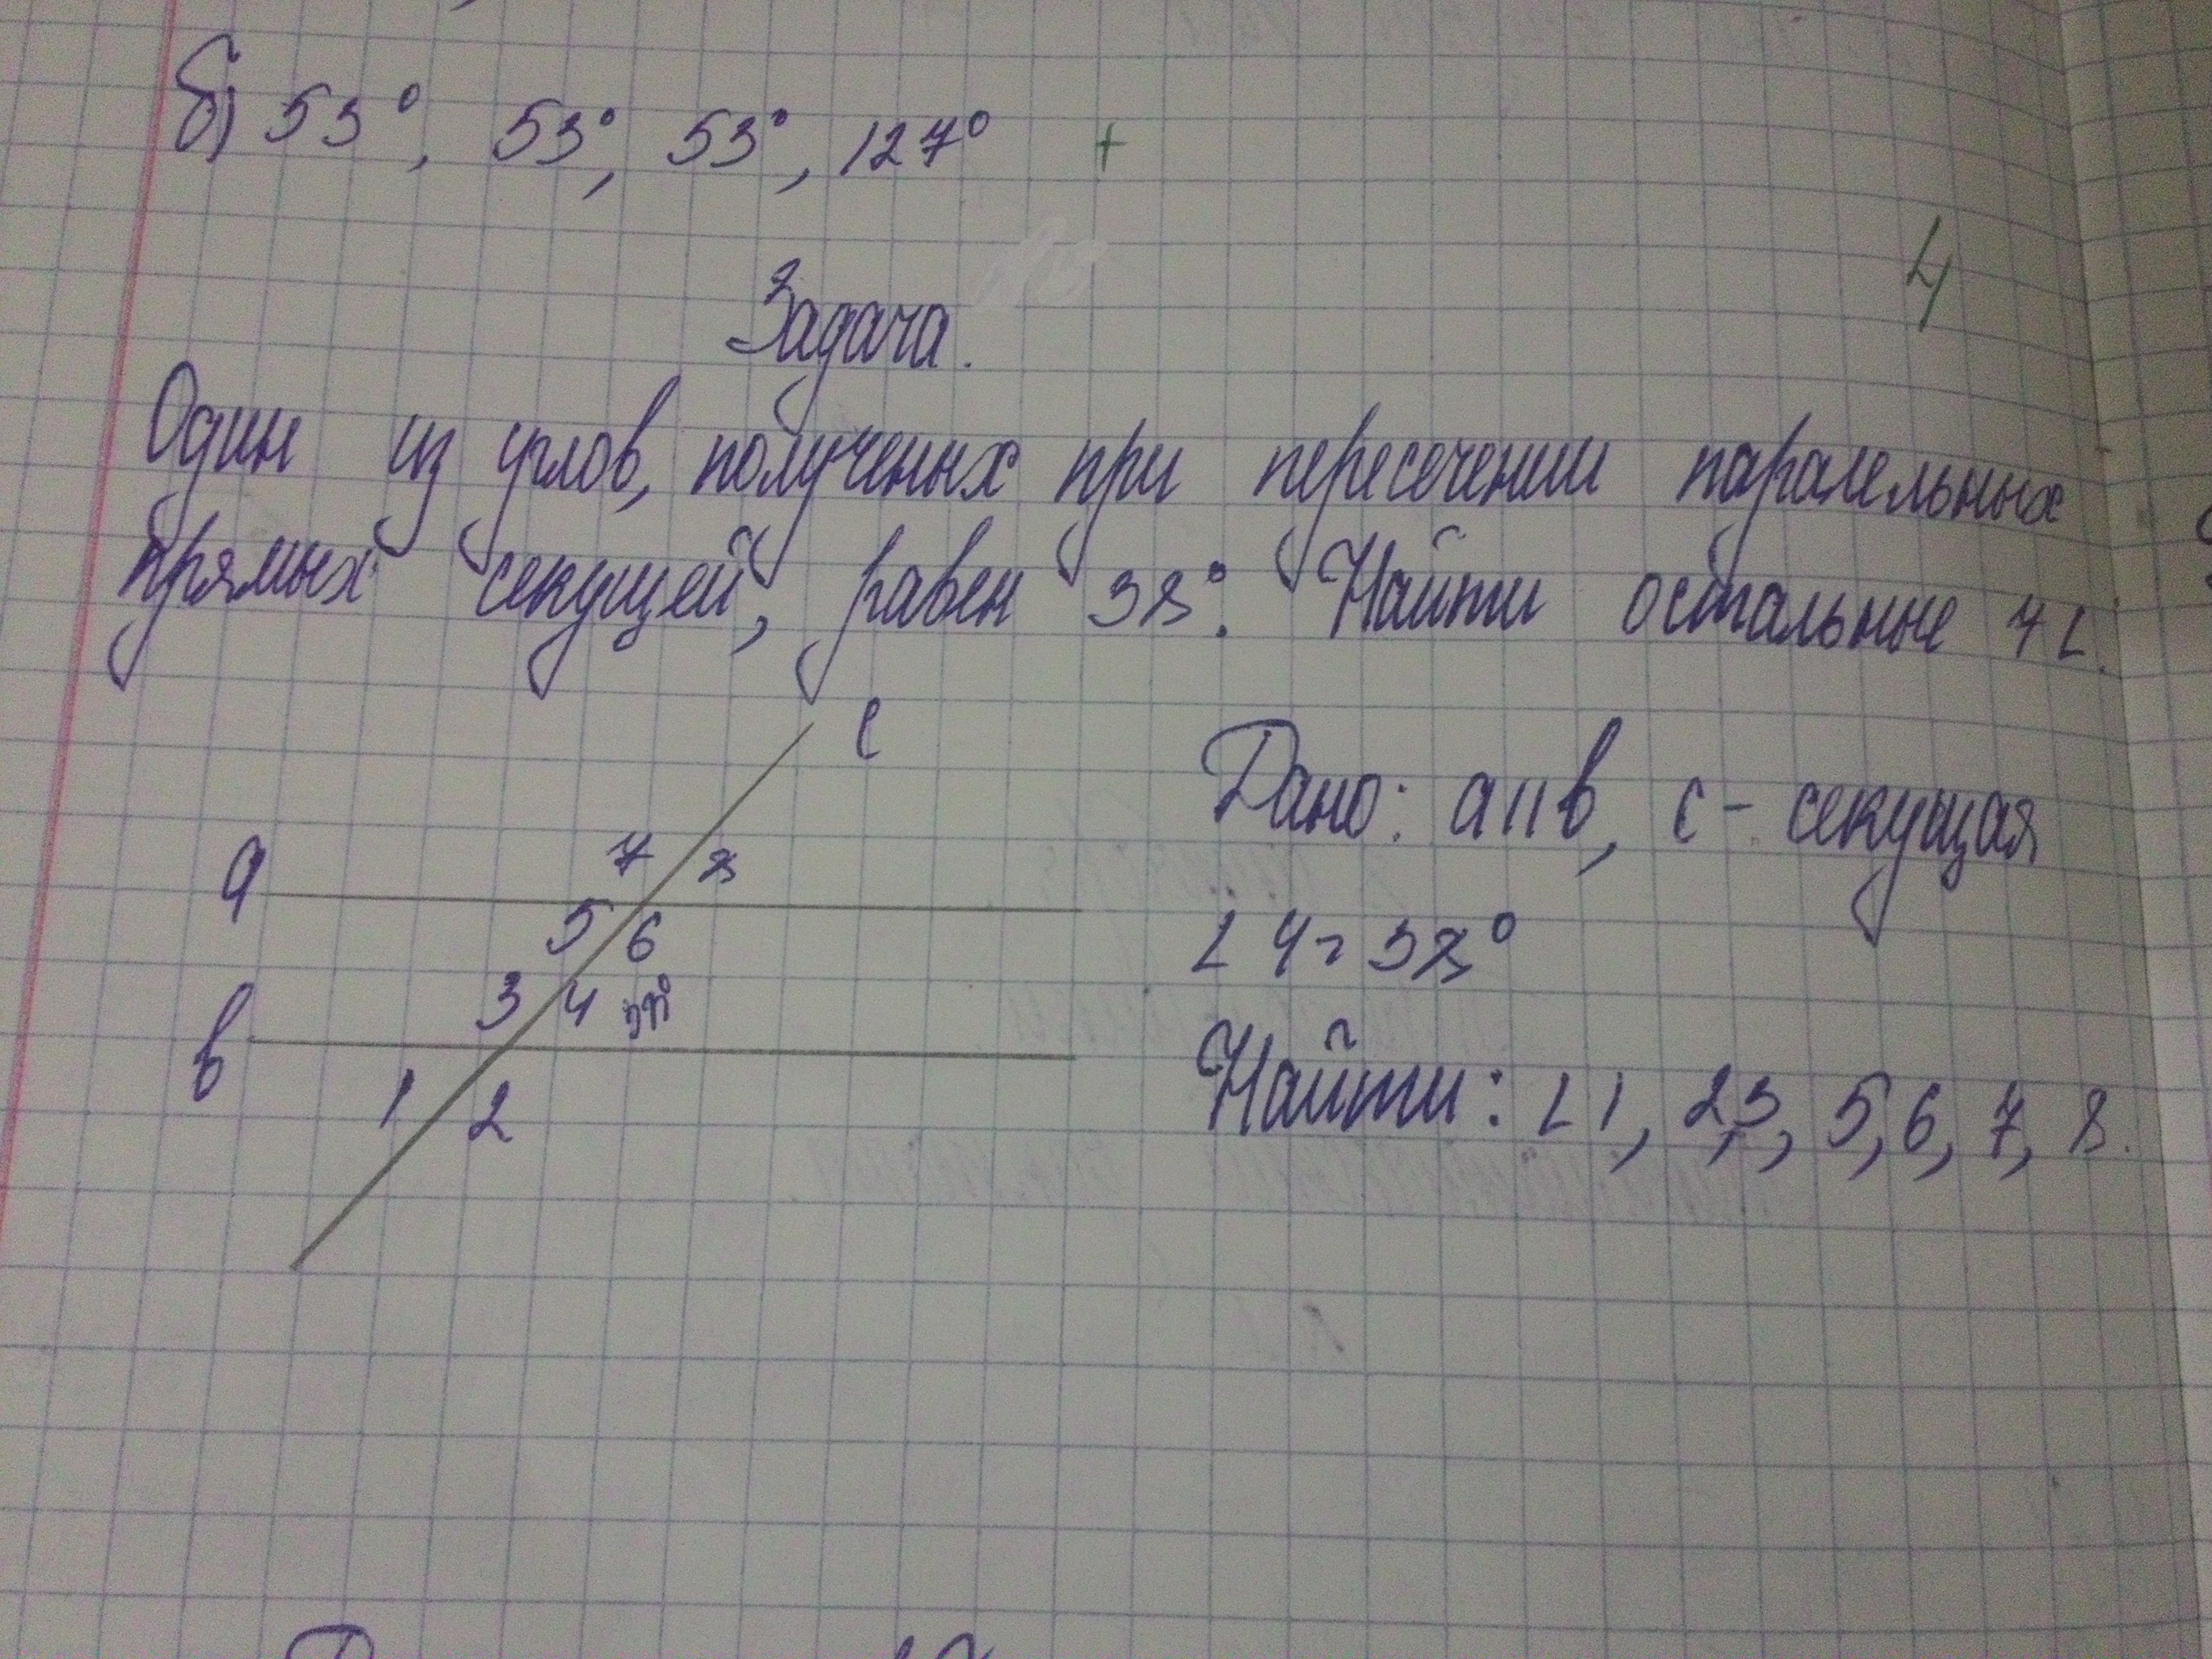 б) 53°, 53°, 53°, 127° +
4
Задача.
Один из углов, полученых при пересечении паралельных
прямых секущей, равен 38°. Найти остальные 7 ∠.
c
a
7 8
5 6
3 4 38°
в
1 2
Дано: a || в, c - секущая
∠ 4 = 38°
Найти: ∠ 1, 2, 3, 5, 6, 7, 8.